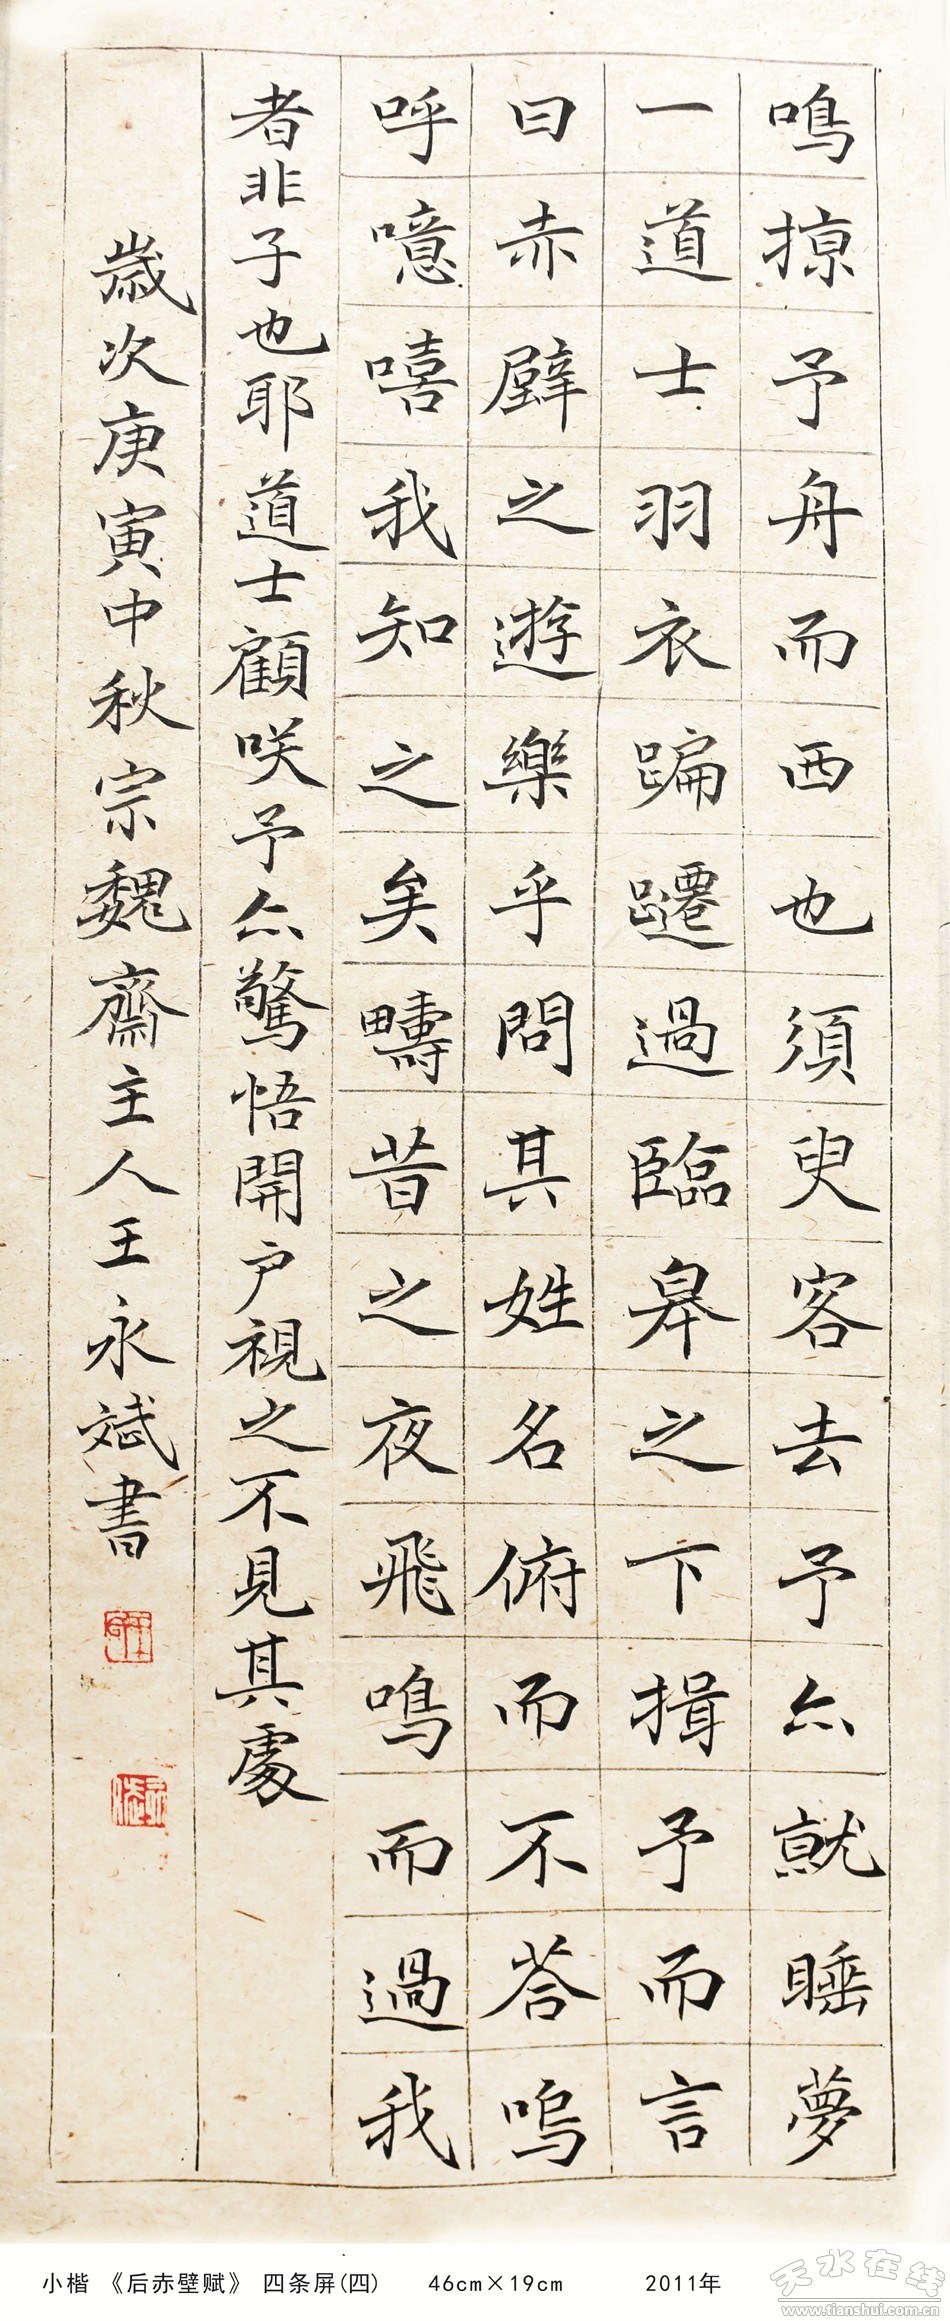 鳴掠予舟而西也須臾客去予亦就睡夢
一道士羽衣蹁躚過臨皋之下揖予而言
曰赤壁之遊樂乎問其姓名俯而不荅嗚
呼噫嘻我知之矣疇昔之夜飛鳴而過我
者非子也耶道士顧咲予亦驚悟開户視之不見其處
歲次庚寅中秋宗魏齋主人王永斌書
小楷 《后赤壁赋》 四条屏(四) 46cm×19cm 2011年
天水在线
www.tianshui.com.cn